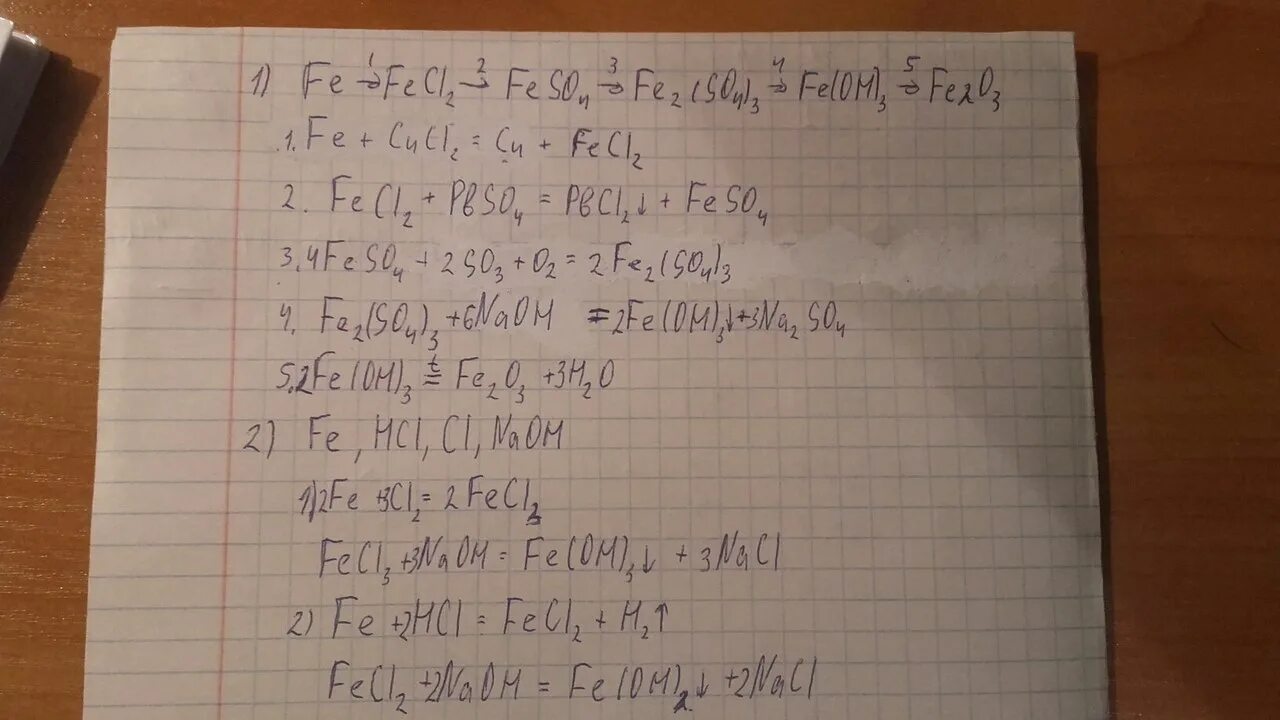 1) Fe →¹ FeCl₂ →² FeSO₄ →³ Fe₂(SO₄)₃ →⁴ Fe(OH)₃ →⁵ Fe₂O₃
1. Fe + CuCl₂ = Cu + FeCl₂
2. FeCl₂ + PbSO₄ = PbCl₂↓ + FeSO₄
3. 4FeSO₄ + 2SO₃ + O₂ = 2Fe₂(SO₄)₃
4. Fe₂(SO₄)₃ + 6NaOH = 2Fe(OH)₃↓ + 3Na₂SO₄
5. 2Fe(OH)₃ =ᵗ Fe₂O₃ + 3H₂O
2) Fe, HCl, Cl, NaOH
1) 2Fe + 3Cl₂ = 2FeCl₃
FeCl₃ + 3NaOH = Fe(OH)₃↓ + 3NaCl
2) Fe + 2HCl = FeCl₂ + H₂↑
FeCl₂ + 2NaOH = Fe(OH)₂↓ + 2NaCl